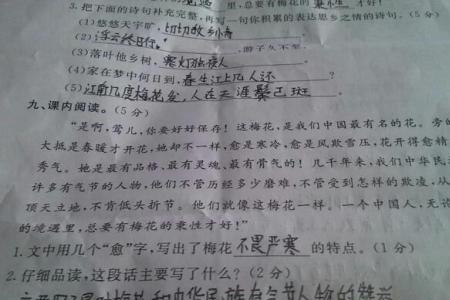 境遇里,总要有梅花的 秉性 才好!
3. 把下面的诗句补充完整,再写一句你积累的表达思乡之情的诗句。(5分)
(1)悠悠天宇旷,切切故乡情
(2)浮云终日行,游子久不至。
(3)落叶他乡树,寒灯独夜人
(4)家在梦中何日到,春生江上几人还?
(5)江南几度梅花发,人在天涯鬓已斑。
九、课内阅读。(5分)
“是啊,莺儿,你要好好保存!这梅花,是我们中国最有名的花。旁的
大抵是春暖才开花,她却不一样,愈是寒冷,愈是风欺雪压,花开得愈精
秀气。她是最有品格、最有灵魂、最有骨气的!几千年来,我们中华民
许多有气节的人物,他们不管历经多少磨难,不管受到怎样的欺凌,从
顶天立地,不肯低头折节。他们就像这梅花一样。一个中国人,无论
的境遇里,总要有梅花的秉性才好!”
1. 文中用几个“愈”字,写出了梅花 不畏严寒 的特点。(1分)
2. 仔细品读,这段话主要写了什么?(2分)